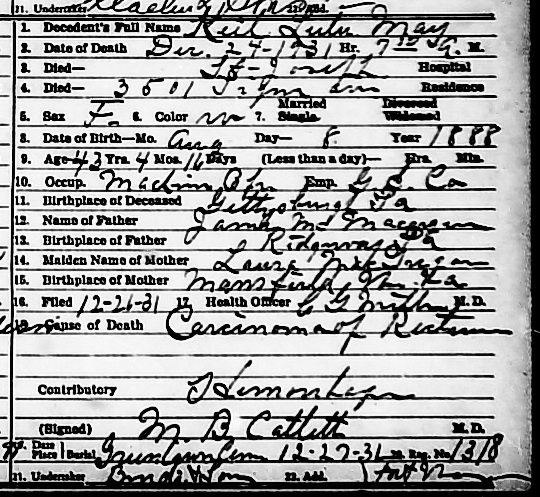 21. Undertaker
1. Decedent's Full Name Keil Lulu May
2. Date of Death Dec. 24-1931 Hr. 7 A. M.
3. Died— St. Joseph Hospital
4. Died— 3501 Residence
5. Sex F. 6. Color w 7. Married Single Divorced Widowed
8. Date of Birth—Mo. Aug Day— 8 Year 1888
9. Age 43 Yrs. 4 Mos. 16 Days (Less than a day)— Hrs. Min.
10. Occup. Machine Emp. G. E. Co
11. Birthplace of Deceased Gettysburg Pa
12. Name of Father James
13. Birthplace of Father Ridgway Pa
14. Maiden Name of Mother Laura
15. Birthplace of Mother Mansfield,
16. Filed 12-26-31 17. Health Officer M. D.
18. Cause of Death Carcinoma of Rectum
Contributory Hemorrhage
(Signed) M. B. Catlett M. D.
19. Date Place Burial Cem 12-27-31 20. Reg. No. 1318
21. Undertaker 22. Add. Fort